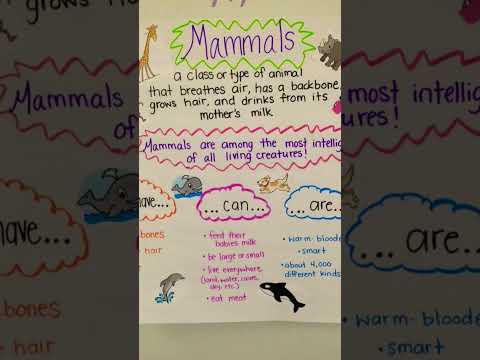 Mammals
a class or type of animal
that breathes air, has a backbone,
grows hair, and drinks from its
mother's milk
Mammals are among the most intellig
of all living creatures!
have...
bones
hair
...can...
• feed their
babies milk
• be large or small
• live everywhere
(land, water, caves,
sky, etc.)
• eat meat
...are...
• warm-bloode
• smart
• about 4,000
different kinds